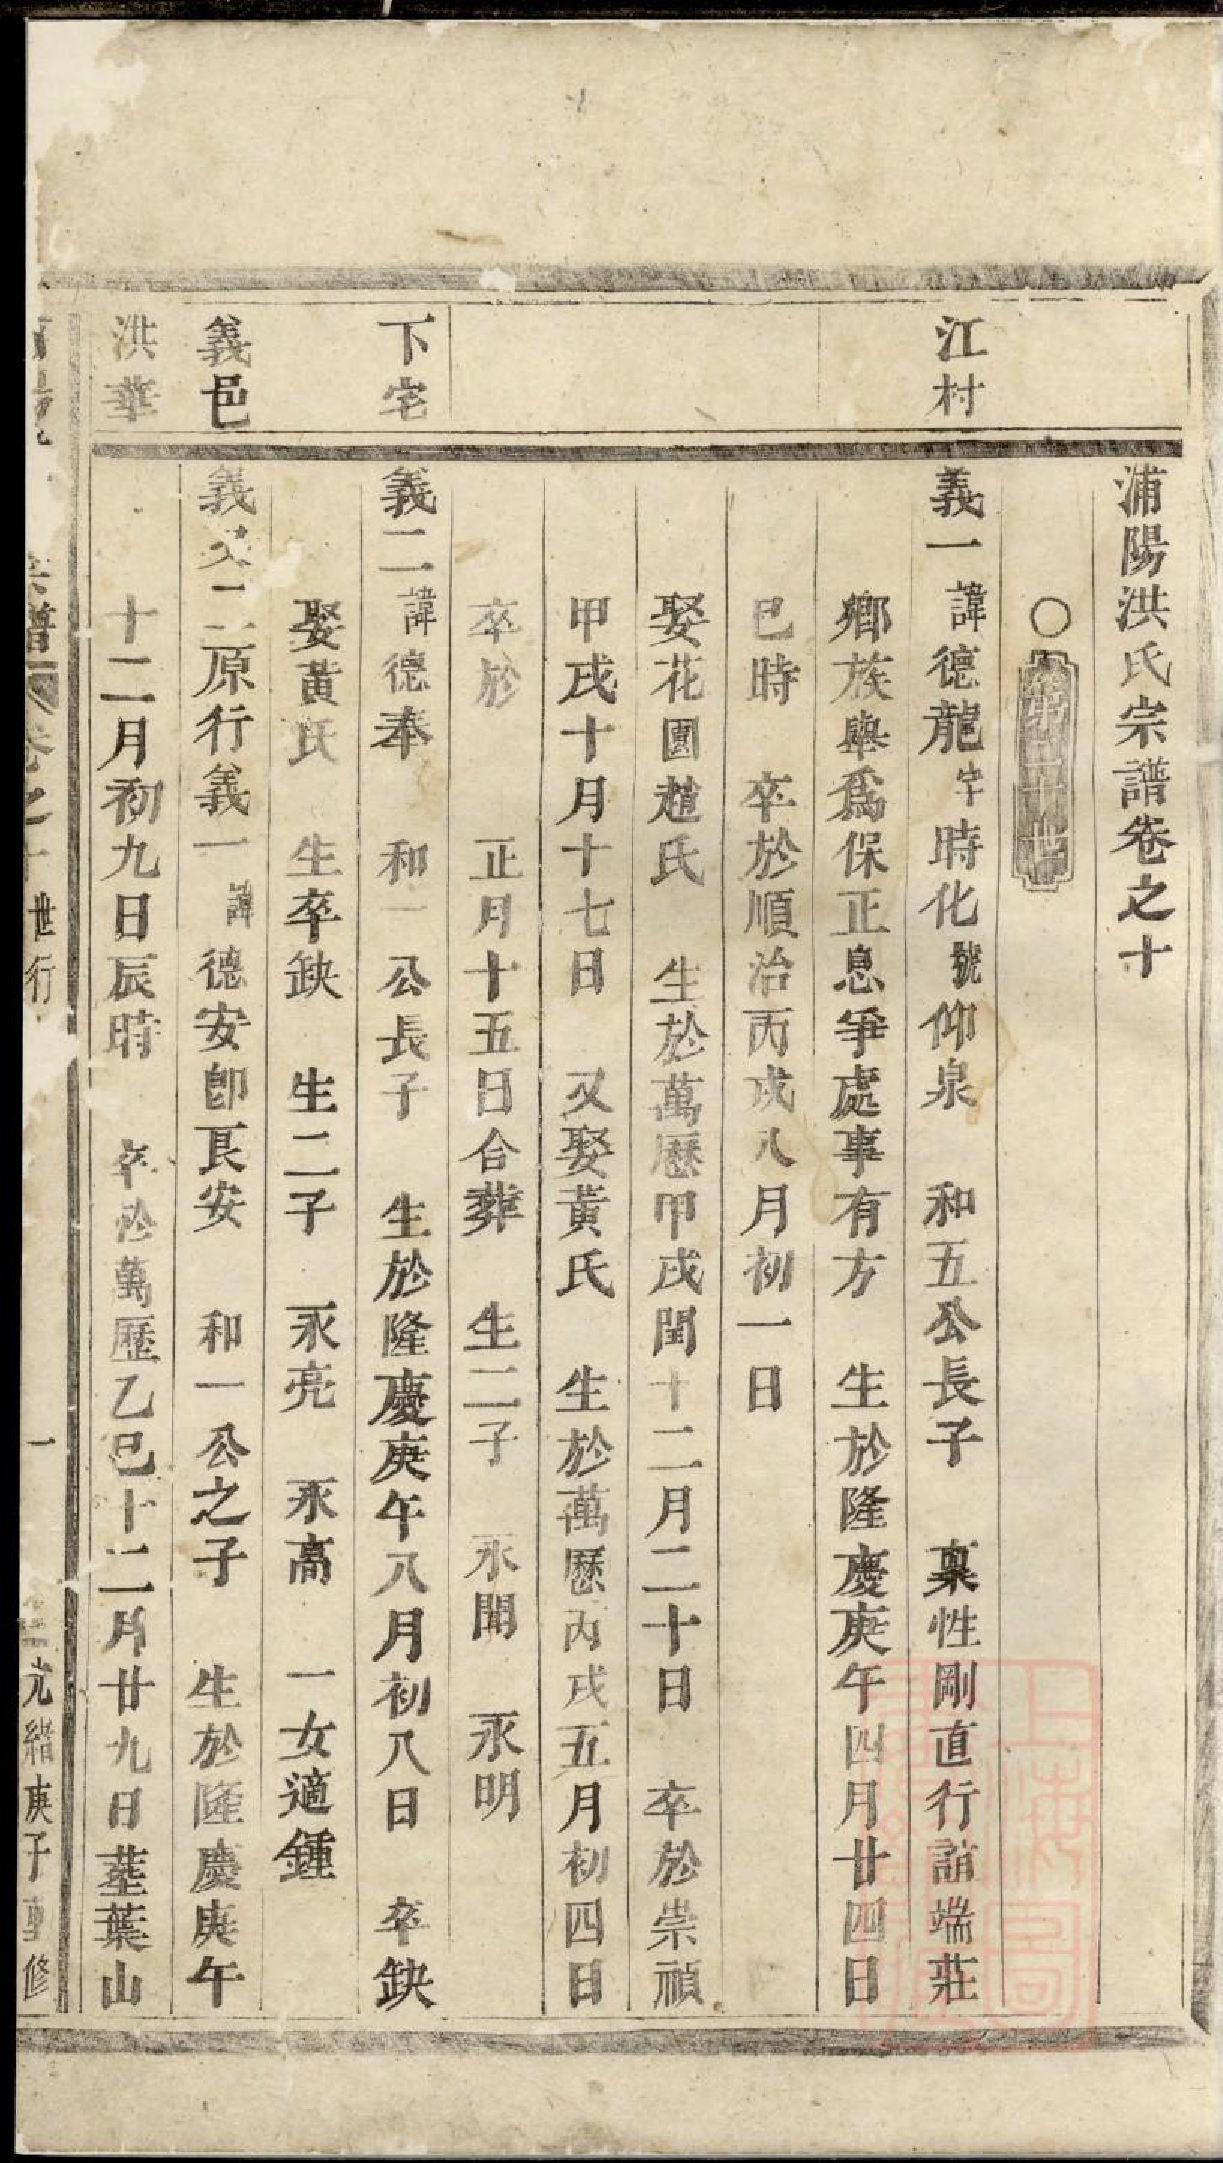 浦陽洪氏宗譜卷之十
○
江村
義一諱德龍字時化號仰泉　和五公長子　稟性剛直行誼端莊
鄉族舉爲保正息爭處事有方　生於隆慶庚午四月廿四日
巳時　卒於順治丙戌八月初一日
娶花園趙氏　生於萬歷甲戌閏十二月二十日　卒於崇禎
甲戌十月十七日　又娶黃氏　生於萬歷丙戌五月初四日
卒於　正月十五日合葬　生二子　永開　永明
下宅
義二諱德奉　和一公長子　生於隆慶庚午八月初八日　卒缺
娶黃氏　生卒缺　生二子　永亮　永高　一女適鍾
義邑
義又二原行義一諱德安卽艮安　和一公之子　生於隆慶庚午
洪華
十二月初九日辰時　卒於萬歷乙巳十二月廿九日塟葉山
宗譜　卷之十　世行　一　光緖庚子重修
上海圖